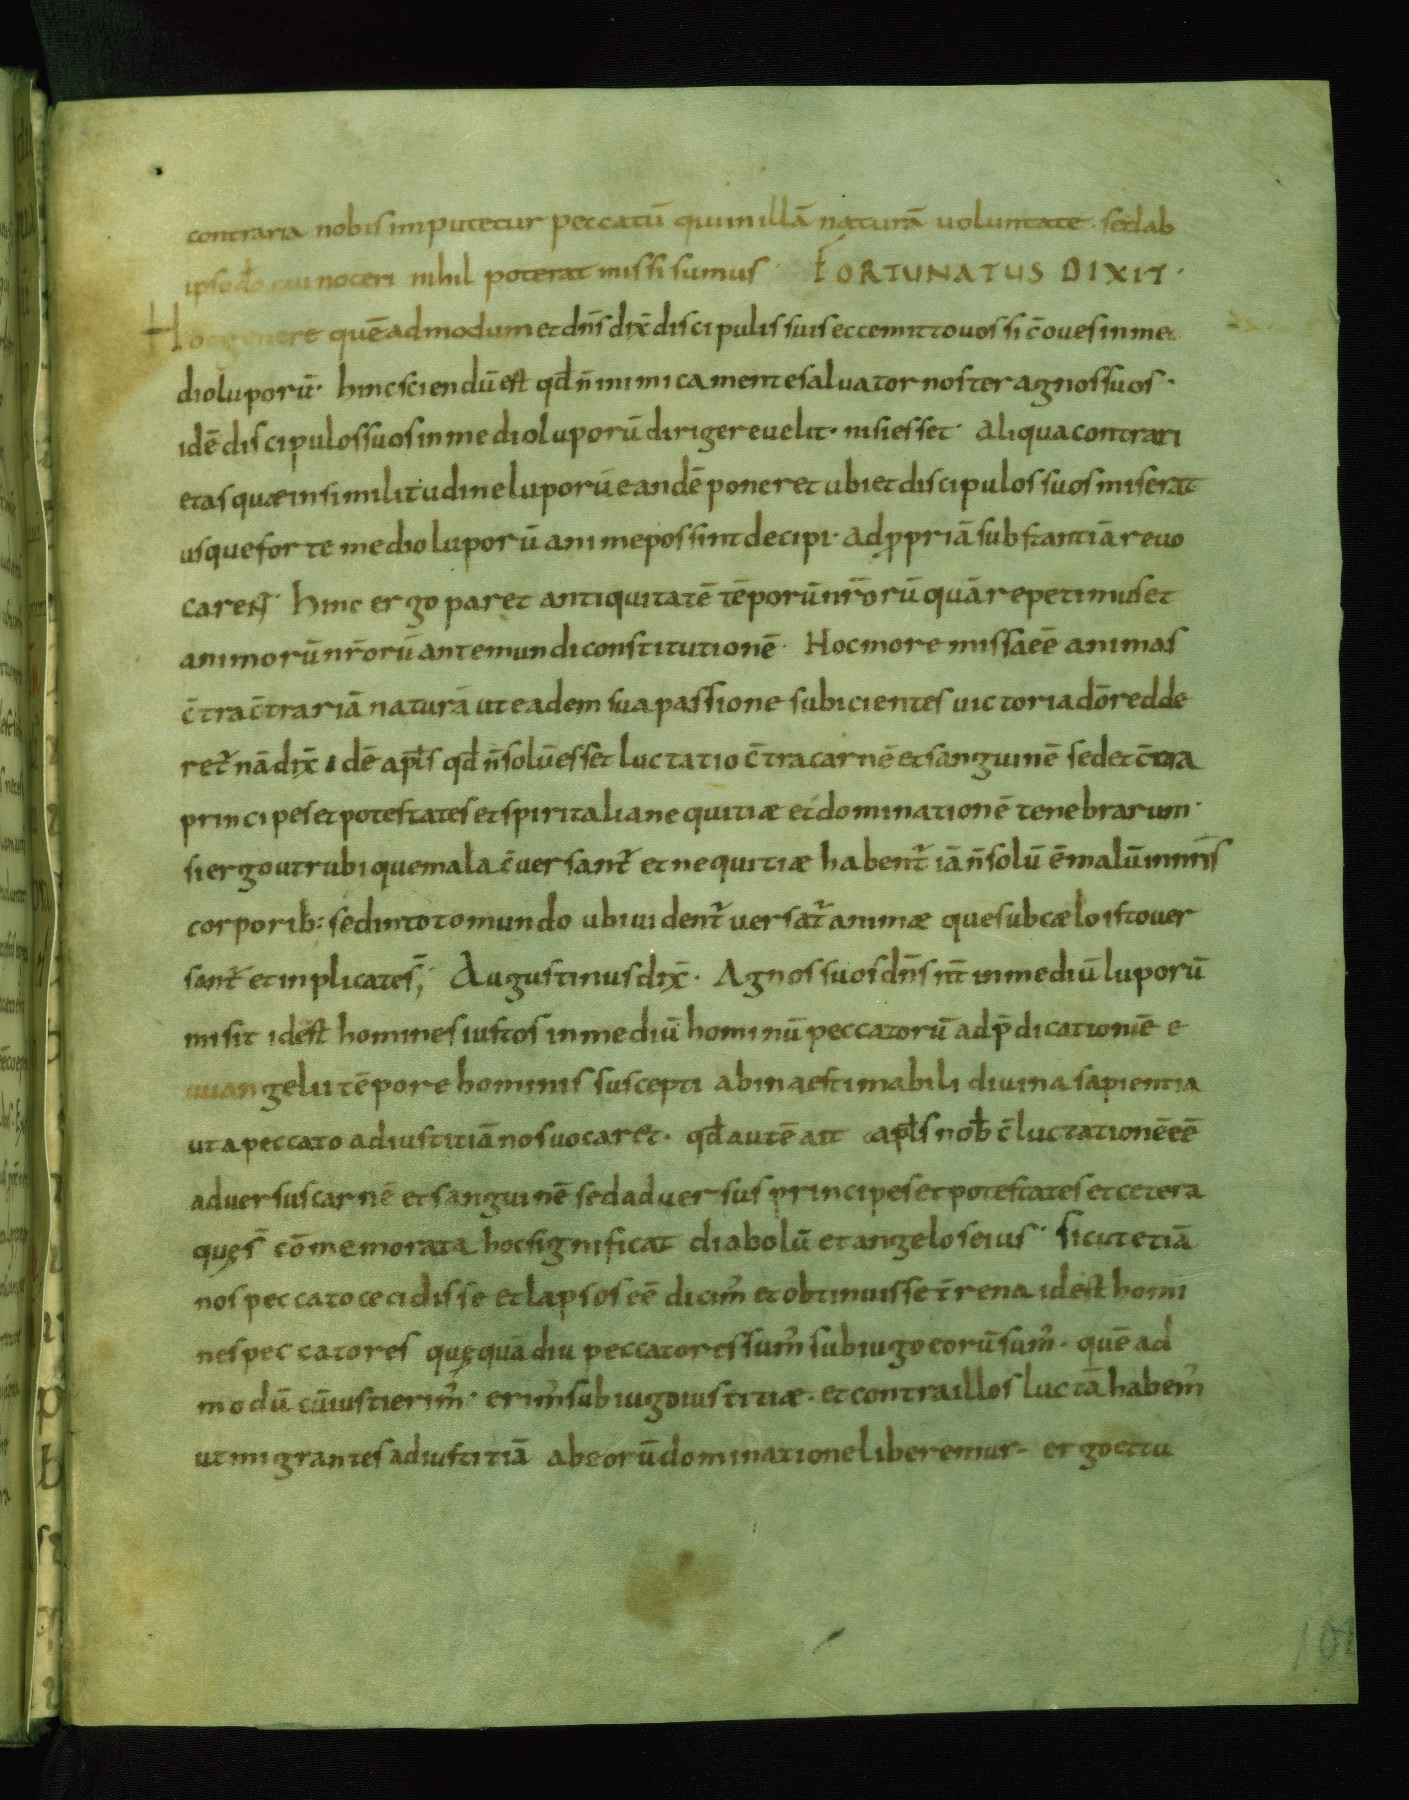 contraria nobis imputetur peccatū qui in illā naturā uoluntate · sed ab
ipso dō cui noceri nihil poterat missi sumus · FORTUNATUS DIXIT ·
Hoc genere quēadmodum et dn̄s dix̄ discipulis suis ecce mitto uos sic̄ oues in me
dio luporū · hinc sciendū est qd̄ n̄ inimica mente saluator noster agnos suos ·
idē discipulos suos in medio luporū dirigere uelit · nisi esset · aliqua contrari
etas quæ in similitudine luporū eandē poneret ubi et discipulos suos miserat
usque forte medio luporū anime possint decipi · ad ppriā substantiā reuo
carent · hinc ergo paret antiquitatē tēporū nr̄orū quā repetimus et
animorū nr̄orū ante mundi constitutionē · Hoc more missa eē animas
c̄tra c̄trariā naturā ut eadem sua passione subicientes uictoria dō redde
ret̄ nā dix̄ idē apl̄s qd̄ n̄ solū esset luctatio c̄tra carnē et sanguinē sed et c̄tra
principes et potestates et spiritalia nequitiæ et dominationē tenebrarum ·
si ergo utrubique mala c̄uersant̄ et nequitiæ habent̄ iā n̄ solū ē malū in nr̄is
corporib: sed in toto mundo ubi uident̄ uersat̄ animæ que sub cælo isto uer
sant̄ et inplicat es̄; Augustinus dix̄ · Agnos suos dn̄s nt̄ in mediū luporū
misit id est homines iustos in mediū hominū peccatorū ad p̄dicationē e
uuangelii tēpore hominis suscepti ab inaestimabili diuina sapientia
ut a peccato ad iustitiā nos uocaret · qd̄ autē ait apl̄s nob̄ c̄luctationē eē
aduersus carnē et sanguinē sed aduersus principes et potestates et cetera
quę s̄ cōmemorata hoc significat diabolū et angelos eius · sicut etiā
nos peccato cecidisse et lapsos eē dicim̄ et obtinuisse t̄rena id est homi
nes peccatores quę quādiu peccatores sum̄ sub iugo eorū sum̄ · quēad
modū cū iusti erim̄ · erim̄ sub iugo iustitiæ · et contra illos luctā habem̄
ut migrantes ad iustitiā ab eorū dominatione liberemur · ergo et tu